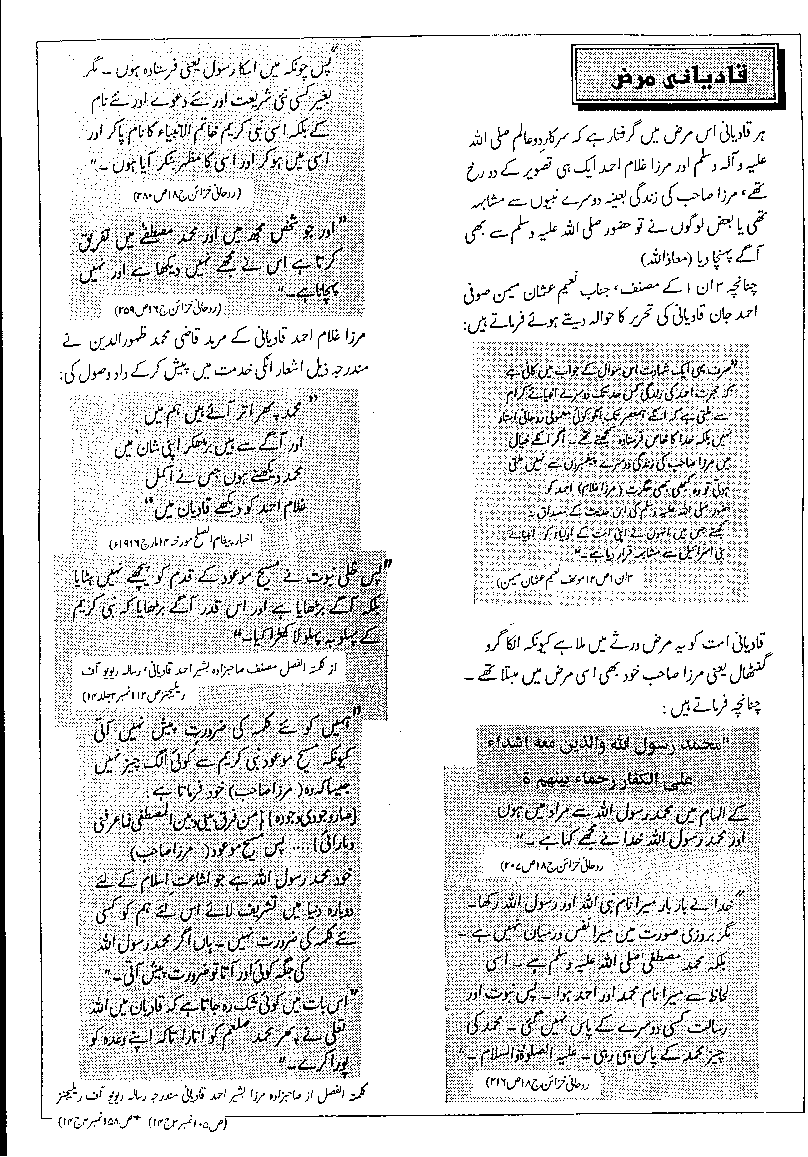 قادیانی مرض
ہر قادیانی اس مرض میں گرفتار ہے کہ سرکار دو عالم صلی اللہ
علیہ و آلہ وسلم اور مرزا غلام احمد ایک ہی تصویر کے دو رخ
تھے، مرزا صاحب کی زندگی بعینہ دوسرے نبیوں سے مشابہہ
تھی یا بعض لوگوں نے تو حضور صلی اللہ علیہ وسلم سے بھی
آگے پہنچا دیا (معاذاللہ)
چنانچہ ۱۲ان۱ کے مصنف، جناب نعیم عثمان میمن صوفی
احمد جان قادیانی کی تحریر کا حوالہ دیتے ہوئے فرماتے ہیں:
"صرف یہی ایک شہادت اس سوال کے جواب میں کافی ہے
کہ حضرت احمد کی زندگی کس حد تک دوسرے انبیائے کرام
سے ملتی ہے کہ انکے ہمعصر تک انکو کوئی معمولی روحانی
نہیں بلکہ خدا کا خاص فرستادہ سمجھتے تھے۔ اگر انکے خیال
میں مرزا صاحب کی زندگی دوسرے پیغمبروں سے نہیں ملتی
ہوتی تو وہ کبھی بھی حضرت (مرزا غلام) احمد کو
حضور صلی اللہ علیہ وسلم کی اس حدیث کے مصداق نہ
سمجھتے جس میں انہوں نے اپنی امت کے اولیاء کو انبیائے
بنی اسرائیل سے مشابہہ قرار دیا ہے۔"
۱۲ان۱ ص۱۲ مولف نعیم عثمان میمن)
قادیانی امت کو یہ مرض ورثے میں ملا ہے کیونکہ انکا گرو
گھنٹال یعنی مرزا صاحب خود بھی اسی مرض میں مبتلا تھے۔
چنانچہ فرماتے ہیں:
"محمد رسول اللہ والذین معہ اشداء
علی الکفار رحماء بینھم ہ
کے الہام میں محمد رسول اللہ سے مراد میں ہوں
اور محمد رسول اللہ خدا نے مجھے کہا ہے۔"
روحانی خزائن ج۱۸ص۲۰۷)
"خدا نے بار بار میرا نام نبی اللہ اور رسول اللہ رکھا۔
مگر بروزی صورت میں میرا نفس درمیان نہیں ہے۔
بلکہ محمد مصطفیٰ صلی اللہ علیہ وسلم ہے۔ اسی
لحاظ سے میرا نام محمد اور احمد ہوا۔ پس نبوت اور
رسالت کسی دوسرے کے پاس نہیں گئی۔ محمد کی
چیز محمد کے پاس ہی رہی۔ علیہ الصلوٰۃ والسلام۔"
روحانی خزائن ج۱۸ص۲۱۶)
"پس چونکہ میں اسکا رسول یعنی فرستادہ ہوں۔ مگر
بغیر کسی نئی شریعت اور نئے دعوے اور نئے نام
کے بلکہ اسی نبی کریم خاتم الانبیاء کا نام پا کر اور
اسی میں ہو کر اور اسی کا مظہر بنکر آیا ہوں۔"
(روحانی خزائن ج۱۸ص۳۸۰)
"اور جو شخص مجھ میں اور محمد مصطفےٰ میں تفریق
کرتا ہے اس نے مجھے نہیں دیکھا ہے اور نہیں
پہچانا ہے۔"
(روحانی خزائن ج۱۶ص۲۵۹)
مرزا غلام احمد قادیانی کے مرید قاضی محمد ظہورالدین نے
مندرجہ ذیل اشعار انکی خدمت میں پیش کر کے داد وصول کی:
"محمد پھر اتر آئے ہیں ہم میں
اور آگے سے ہیں بڑھکر اپنی شان میں
محمد دیکھنے ہوں جس نے اکمل
غلام احمد کو دیکھے قادیان میں"
اخبار پیغام الصلح مورخہ ۱۴مارچ ۱۹۱۶ء)
"پس ظلی نبوت نے مسیح موعود کے قدم کو پیچھے نہیں ہٹایا
بلکہ آگے بڑھایا ہے اور اس قدر آگے بڑھایا کہ نبی کریم
کے پہلو بہ پہلو لا کھڑا کیا۔"
از کلمتہ الفصل مصنف صاحبزادہ بشیر احمد قادیانی، رسالہ ریویو آف
ریلیجنز ص۱۱۳ نمبر۳جلد۱۴)
"ہمیں کوئے کلمہ کی ضرورت پیش نہیں آتی
کیونکہ مسیح موعود نبی کریم سے کوئی الگ چیز نہیں
جیسا کہ وہ (مرزا صاحب) خود فرماتا ہے
(صار وجودی وجودہ) (من فرق بینی و بین المصطفیٰ فما عرفنی
و ما رائی)..... پس مسیح موعود (مرزا صاحب)
خود محمد رسول اللہ ہے جو اشاعت اسلام کے لئے
دوبارہ دنیا میں تشریف لائے اس لئے ہم کو کسی
نئے کلمہ کی ضرورت نہیں۔ ہاں اگر محمد رسول اللہ
کی جگہ کوئی اور آتا تو ضرورت پیش آتی۔"
"اس بات میں کوئی شک رہ جاتا ہے کہ قادیان میں اللہ
تعالیٰ نے پھر محمد صلعم کو اتارا تاکہ اپنے وعدہ کو
پورا کرے۔"
کلمتہ الفصل از صاحبزادہ مرزا بشیر احمد قادیانی مندرجہ رسالہ ریویو آف ریلیجنز
(ص۱۰۵نمبر۳ج۱۴) + ص۱۵۸نمبر۳ج۱۴)